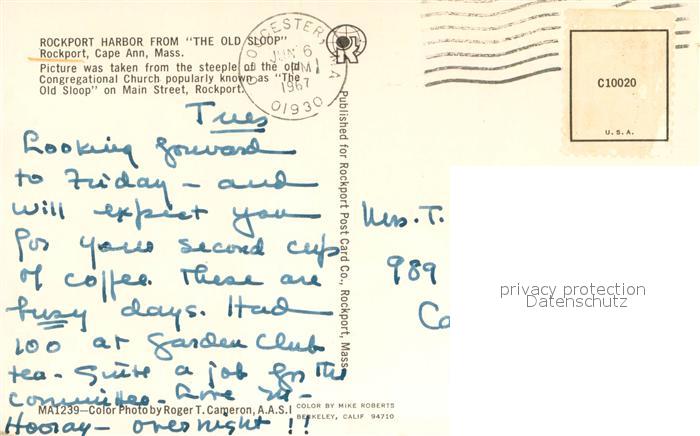 ROCKPORT HARBOR FROM "THE OLD SLOOP"
Rockport, Cape Ann, Mass.
Picture was taken from the steeple of the old
Congregational Church popularly known as "The
Old Sloop" on Main Street, Rockport.
GLOUCESTER, MA
JUN 6
1967
01930
C10020
U.S.A.
Published for Rockport Post Card Co., Rockport, Mass.
Tues
Looking forward
to Friday – and
will expect you
for your second cup
of coffee. These are
busy days. Had
100 at Garden Club
tea. Quite a job for the
committee.
Hooray – overnight !!
Mrs. T.
989
privacy protection
Datenschutz
MA1239—Color Photo by Roger T. Cameron, A.A.S.I
COLOR BY MIKE ROBERTS
BERKELEY, CALIF 94710